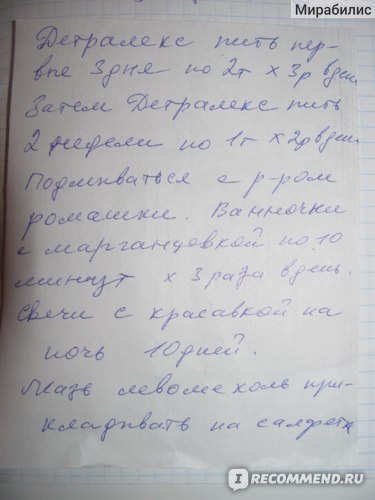 Мирабилис
Детралекс пить пер-
вые 3 дня по 2т х 3р в день
Затем Детралекс пить
2 недели по 1т х 2р в день
Подмываться с р-ром
ромашки. Ванночки
с марганцовкой по 10
минут х 3 раза в день.
Свечи с красавкой на
ночь 10 дней.
Мазь левомеколь при-
кладывать на салфетке
IRECOMMEND.RU